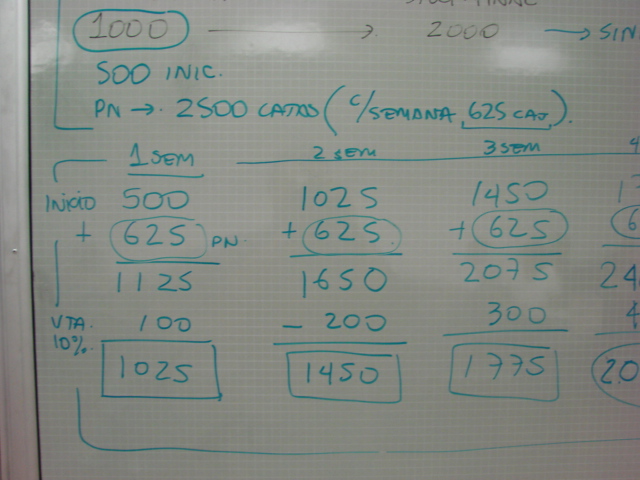 1000 → 2000 → SIN
500 INIC.
PN → 2500 CAJAS (C/SEMANA 625 CAJ).
1 SEM 2 SEM 3 SEM 4
INICIO 500 1025 1450 17
+ 625 PN + 625 + 625 6
1125 1650 2075 24
VTA. 10% 100 - 200 300 4
1025 1450 1775 2.0